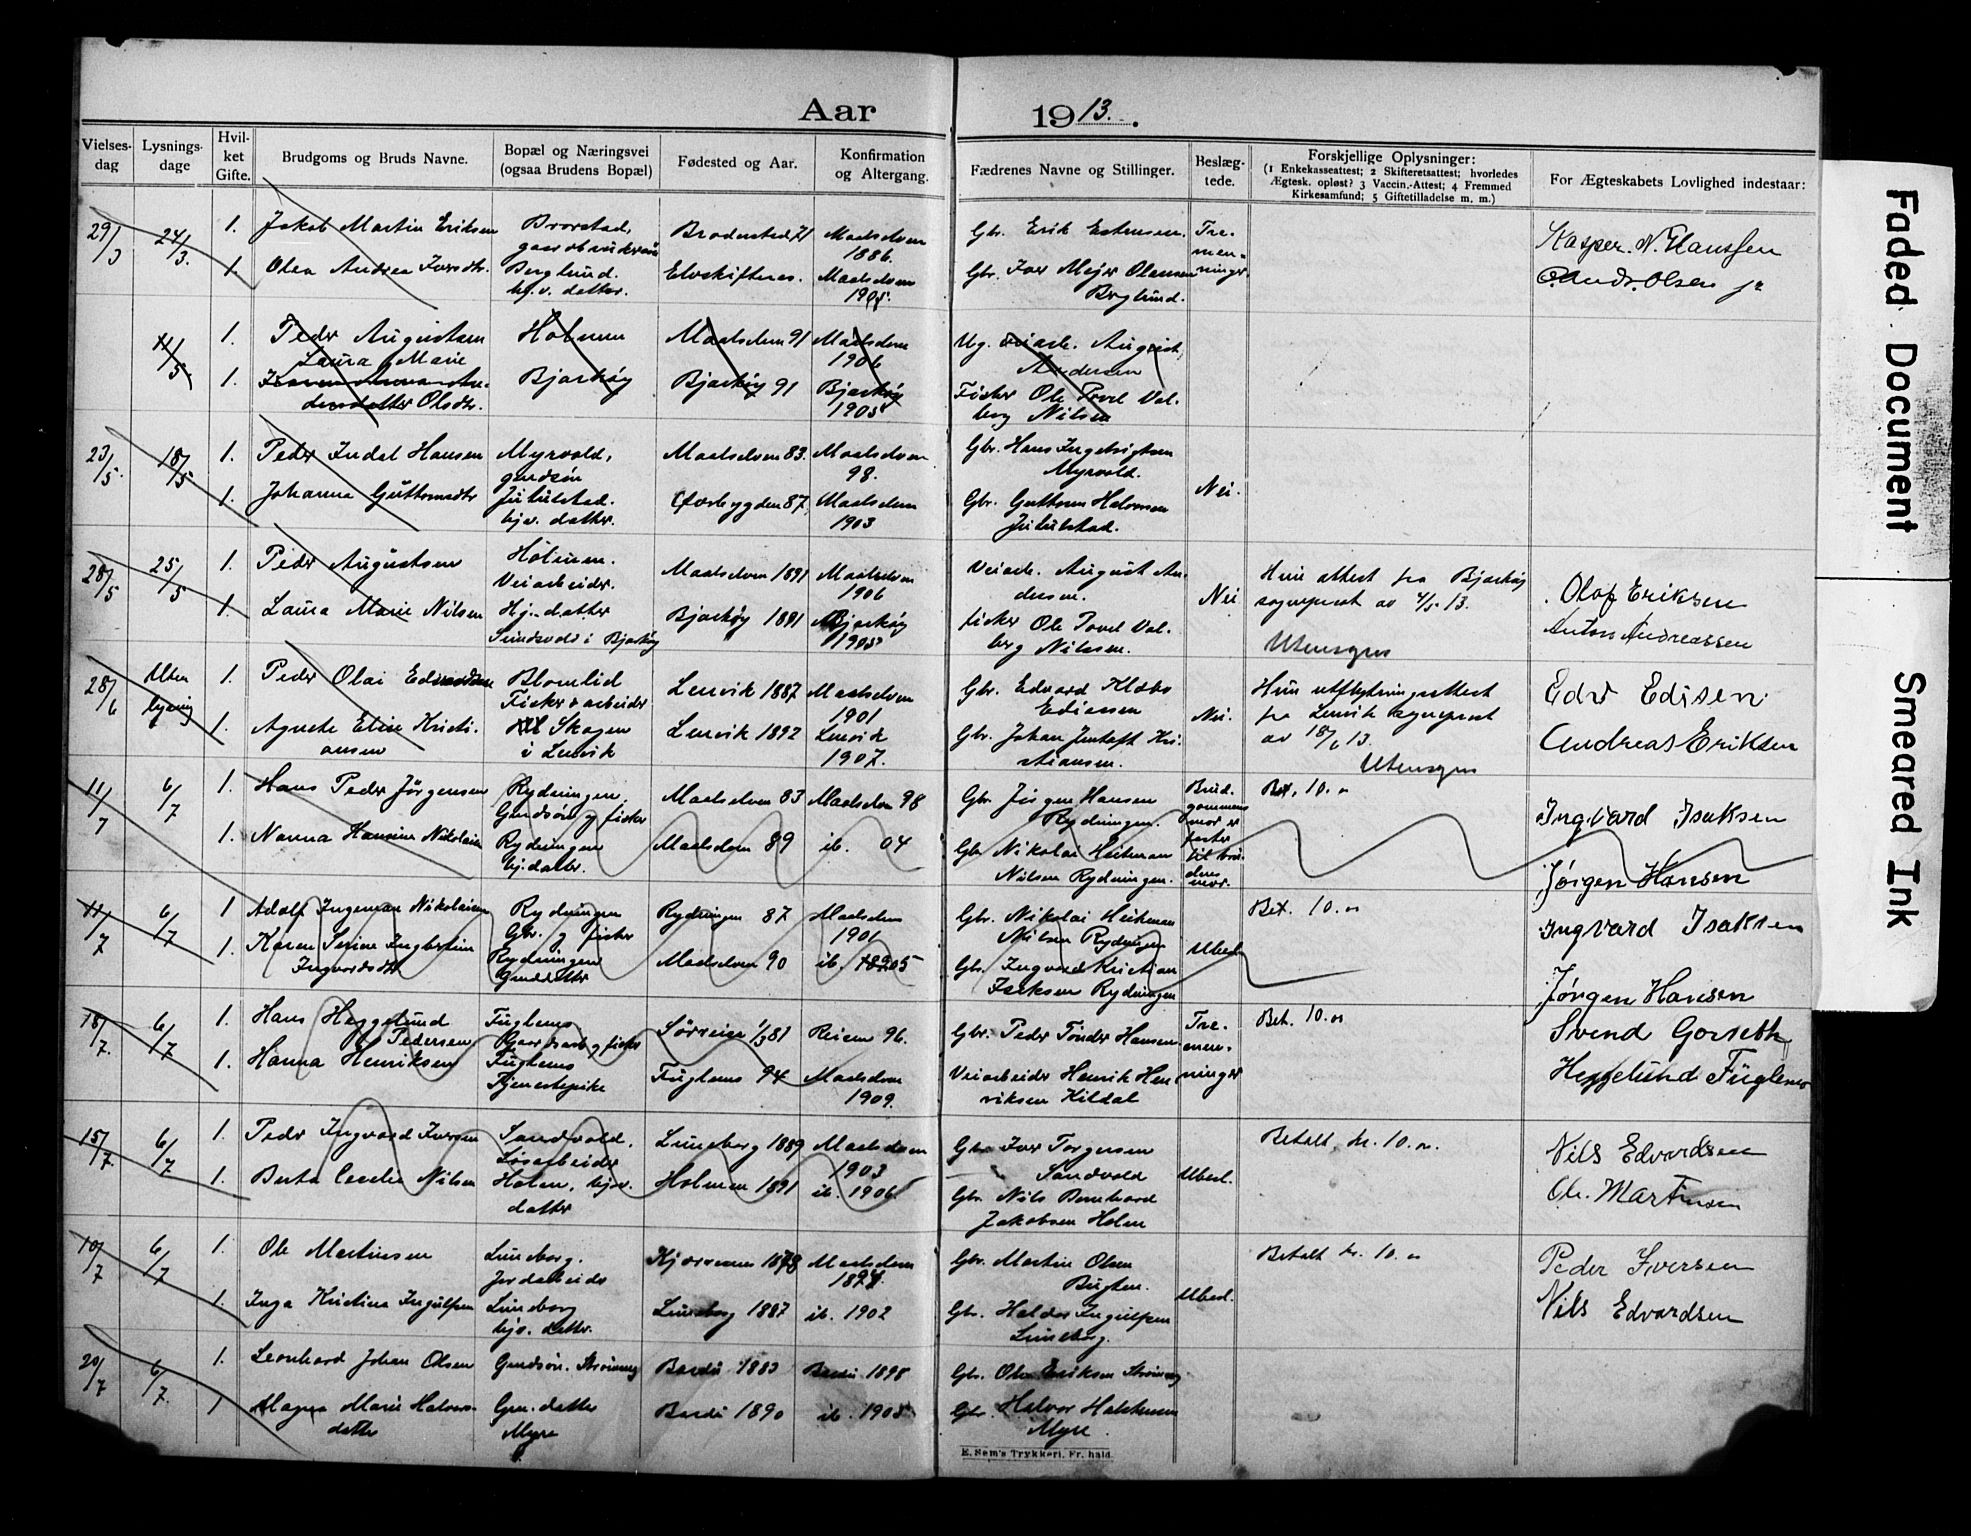 Aar 1913.
Vielses-dag
Lysnings-dage
Hvil-ket Gifte.
Brudgoms og Bruds Navne.
Bopæl og Næringsvei (ogsaa Brudens Bopæl)
Fødested og Aar.
Konfirmation og Altergang.
Fædrenes Navne og Stillinger.
Beslæg-tede.
Forskjellige Oplysninger:
(1 Enkekasseattest; 2 Skifteretsattest; hvorledes
Ægtesk. opløst? 3 Vaccin.-Attest; 4 Fremmed
Kirkesamfund; 5 Giftetilladelse m. m.)
For Ægteskabets Lovlighed indestaar:
29/3 24/3. 1. Jakob Martin Eriksen
Maalselven 1886.
Gbr. Erik Estensen. Tre-men-ninger.
Kasper. N. Hanssen
1. Olea Andrea Iversdtr. Berglund. hj.v. datter.
Elvskiftenes. Maalselven 1905.
Gbr. Iver Mejer Olausen Berglund.
Ands. Olsen jr
11/5 1. Peder Augustsen Holmen Maalselven 91 Maalselven 1906
Ug. veiarb. August Andersen
1. Laura Marie Olsdtr. Bjarkøy Bjarkøy 91 Bjarkøy 1905
Fisker Ole Povel Val-berg Nilsen
23/5. 18/5 1. Peder Indal Hansen Myrvold, gaardsøn Maalselven 83. Maalselven 98.
Gbr. Hans Ingebrigtsen Myrvold. Nei.
1. Johanna Guttormsdtr Jutulstad. hjv. datter. Øverbygden 87, Maalselven 1903
Gbr. Guttorm Halvorsen Jutulstad.
28/5 25/5 1. Peder Augustsen Holmen. Veiarbeider. Maalselven 1891 Maalselven 1906
Veiarb. August An-dersen. Nei
Hun attest fra Bjarkøy
sogneprest av 4/5 13.
Utensogns
Olaf Eriksen
1. Laura Marie Nilsen Hj. datter
Sundsvold i Bjarkøy
Bjarkøy 1891 Bjarkøy 1905
fisker Ole Povel Val-berg Nilsen.
Anton Andreassen
28/6 Uten lysning 1. Peder Olai Blomlid Fisker & arbeider Lenvik 1887 Maalselven 1901
Gbr. Edvard Klæbo Ediassen Nei.
Hun utflytningsattest
fra Lenvik sogneprest
av 18/6 13.
Utensogns
Edv Edisen
1. Agnete Elise Kristi-ansen Skogen i Lenvik Lenvik 1892 Lenvik 1907.
Gbr. Johan Jentoft Kri-stiansen.
Andreas Eriksen
11/7 6/7 1. Hans Peder Jørgensen Rydningen, Gaardsøn og fisker Maalselven 83 Maalselven 98
Gbr. Jørgen Hansen Rydningen.
Brud-gommens mor er faster til bru-dens mor.
Bet. 10.00
Ingvard Isaksen
1. Nanna Hansine Nikolaisen Rydningen hj. datter. Maalselven 89 ib. 04
Gbr. Nikolai Heitman Nilsen Rydningen.
Jørgen Hansen
11/7 6/7 1 Adolf Ingeman Nikolaisen Rydningen Gbr. og fisker Rydningen 87 Maalselven 1901
Gbr. Nikolai Heitman Nilsen Rydningen Ubesl.
Bet. 10.00
Ingvard Isaksen
1. Karen Serine Ingvardsdtr Rydningen Gaarddatter Maalselven 90 ib. 1905
Gbr. Ingvard Kristian Isaksen Rydningen
Jørgen Hansen
18/7. 6/7 1. Hans Heggelund Pedersen Fuglenes Sørreisa 81 Reisen 96.
Gbr. Peder Tønder Hansen. Tre-men-ninger
Bet. 10.00
Svend
1. Hanna Henriksen Fuglenes Tjenestepike Fuglenes 94 Maalselven 1909.
Veiarbeider Henrik Hen-riksen Kildal
Heggelund Fuglenes
15/7. 6/7 1. Peder Ingvard Iversen Sandvold. Løsarbeider Luneborg 1889 Maalselven 1903
Gbr. Iver Torgersen Sandvold Ubesl.
Betalt kr. 10.00
Nils Edvardsen
1. Berta Cecelie Nilsen Holen, hjv. datter Holmen 1891 ib. 1906
Gbr. Nils Bernhard Jakobsen Holen
Ole. Martinsen
10/7 6/7 1. Ole Martinsen Luneborg. Jordarbeider Maalselven
Gbr. Martin Olsen Bugten. Ubesl.
Betalt kr. 10.00
Peder Iversen
1. Inga Kristina Ingulfsen Luneborg hjv. datter. Luneborg 1887 ib. 1902
Gbr. Haldor Ingulfsen Luneborg.
Nils Edvardsen
20/7 6/7. 1. Leonhard Johan Olsen Gaardsøn. Strømmeng Bardu 1883 Bardu 1898
Gbr. Ole Eriksen Strømmeng
1 Magna Marie Halvors-datter Grn. datter Myre Bardu 1890 ib. 1905
Gbr. Halvor Halstensen Myre.
E. Sem's Trykkeri, Fr.hald.
Faded Document
Smeared Ink